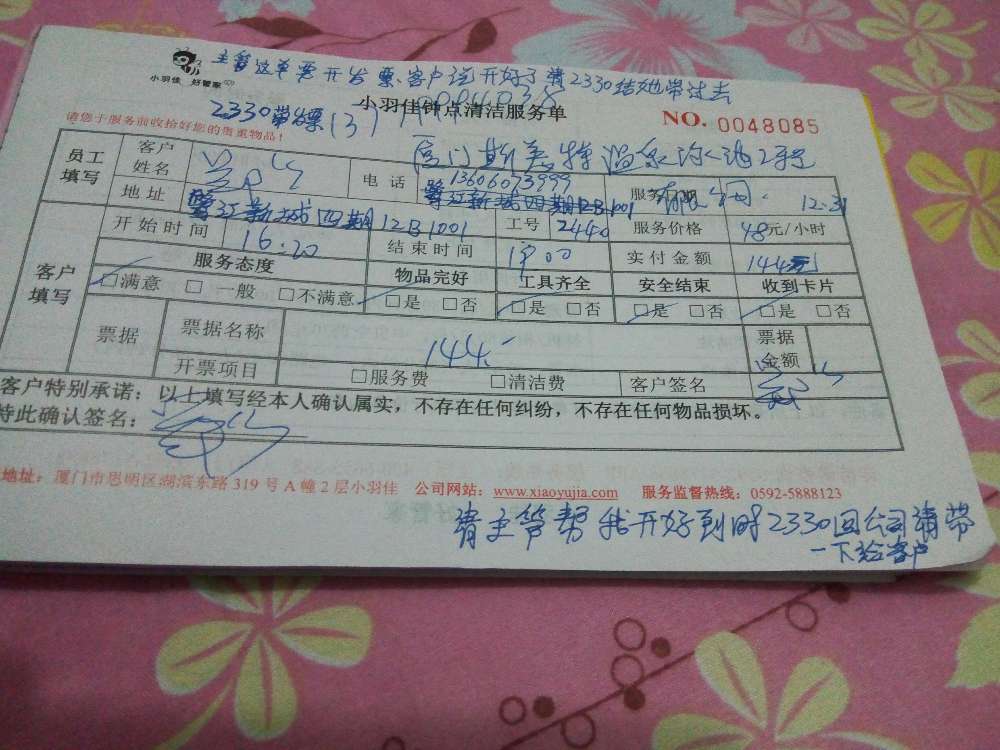 主管这单要开发票、客户说开好了请2330结她带过去
小羽佳 好管家
小羽佳钟点清洁服务单
NO. 0048085
2330带票(3)
请您于服务前收拾好您的贵重物品!
厦门斯美特温泉
员工填写 客户姓名 电话 13606073999 服务 12.31
地址 鹭江新城四期12B1001 鹭江新城四期12B1001
开始时间 16:20 结束时间 19:00 工号 2440 服务价格 48元/小时
实付金额 144元
客户填写 服务态度 物品完好 工具齐全 安全结束 收到卡片
□满意 □一般 □不满意 □是 □否 □是 □否 □是 □否 □是 □否
票据 票据名称 144 票据金额
开票项目 □服务费 □清洁费 客户签名
客户特别承诺:以上填写经本人确认属实,不存在任何纠纷,不存在任何物品损坏。
特此确认签名:
地址:厦门市思明区湖滨东路319号A幢2层小羽佳 公司网站:www.xiaoyujia.com 服务监督热线:0592-5888123
请主管帮我开好到时2330回公司请带
一下给客户